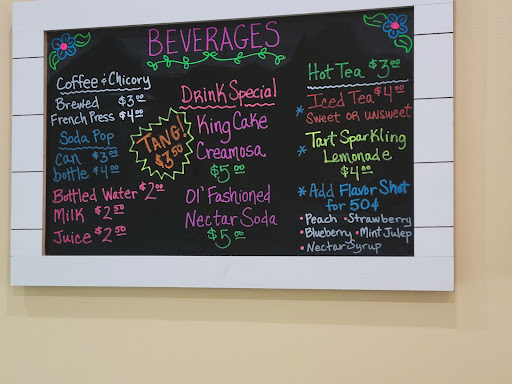 BEVERAGES
Coffee & Chicory
Brewed $3.00
French Press $4.00
Soda Pop
Can $3.00
bottle $4.00
Bottled Water $2.00
Milk $2.50
Juice $2.50
TANG!
$3.50
Drink Special
King Cake
Creamosa
$5.00
Ol' Fashioned
Nectar Soda
$5.00
Hot Tea $3.00
* Iced Tea $4.00
Sweet or unsweet
* Tart Sparkling
Lemonade
$4.00
* Add Flavor Shot
for 50¢
• Peach • Strawberry
• Blueberry • Mint Julep
• Nectar Syrup